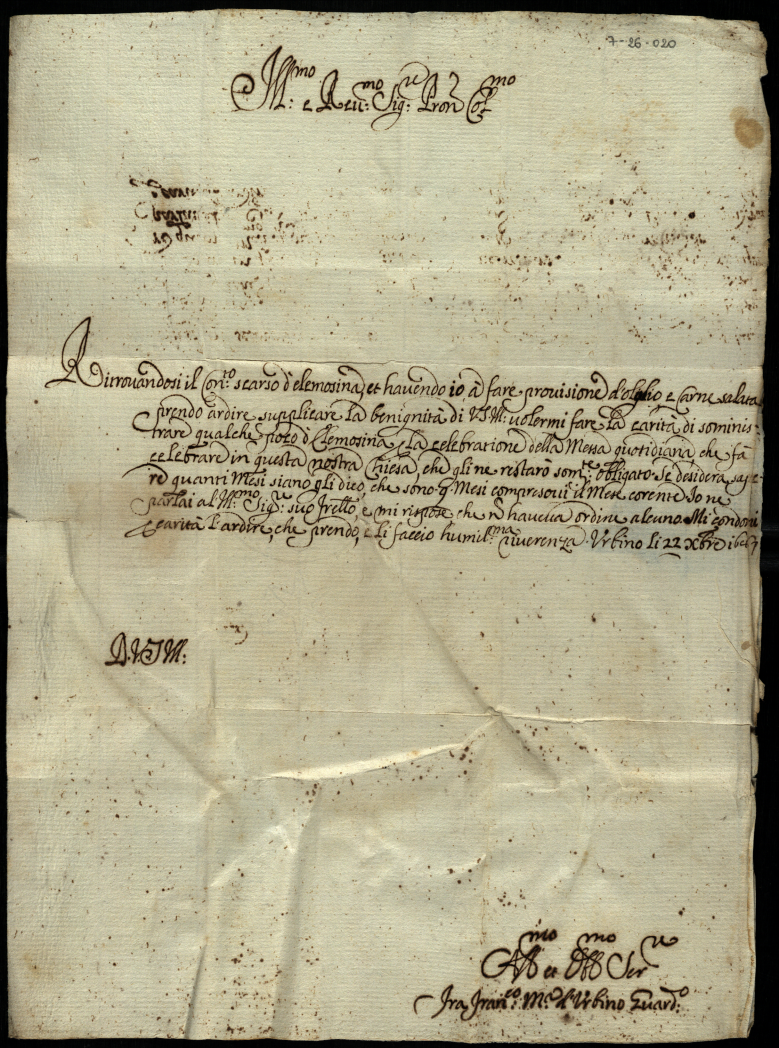 7-26-020
Ill:mo e Reu:mo Sig:re Pron Col:mo
Ritrouandosi il Con:to scarso d'elemosina, et hauendo io à fare prouisione d'oglio e Carne salata
prendo ardire supplicare la benignità di V.S.Ill: uolermi fare la carità di sominis-
trare qualche poco d'Elemosina p la celebratione della Messa quotidiana, che fà
celebrare in questa nostra Chiesa, che gli ne restarò som:te obligato. Se desidera sape
re quanti Mesi siano gli dico, che sono 9 Mesi compresoui il Mese corente. Io ne
parlai al Ill:mo Sig:re suo frello, e mi rispose che n haueua ordine alcuno. Mi condoni
p carità l'ardire, che prendo, e li faccio humil:ma riuerenza. Vrbino li 22 Xbre
D.V.S.Ill:
Aff:mo et Obb:mo Ser:re
Fra Fran:co M:a d'Vrbino Guard:o